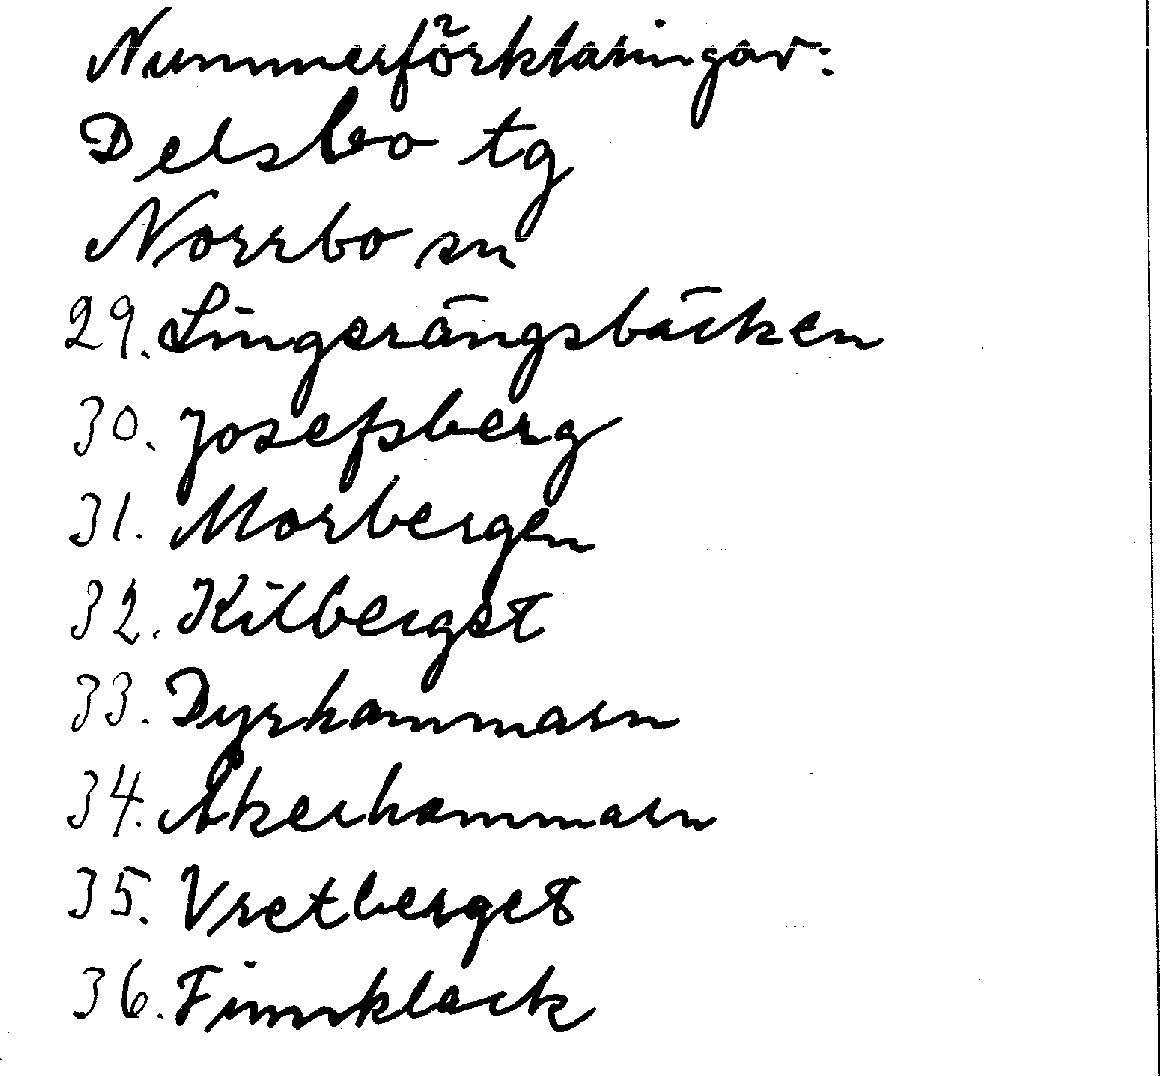 Nummerförklaringar:
Delsbo tg
Norrbo sn
29. Lingerängsbäcken
30. Josefsberg
31. Morbergen
32. Kilberget
33. Dyrhammarn
34. Åkerhammarn
35. Vretberget
36. Finnklack